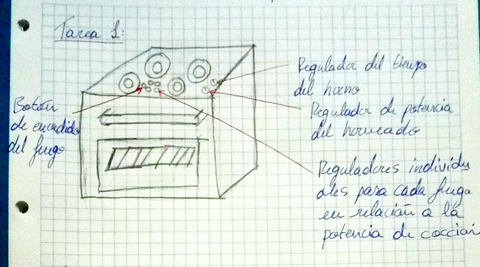 Tarea 1:
Regulador del tiempo
del horno
Botón
de encendido
del fuego
Regulador de potencia
del horneado
Reguladores individu
ales para cada fuego
en relación a la
potencia de cocción